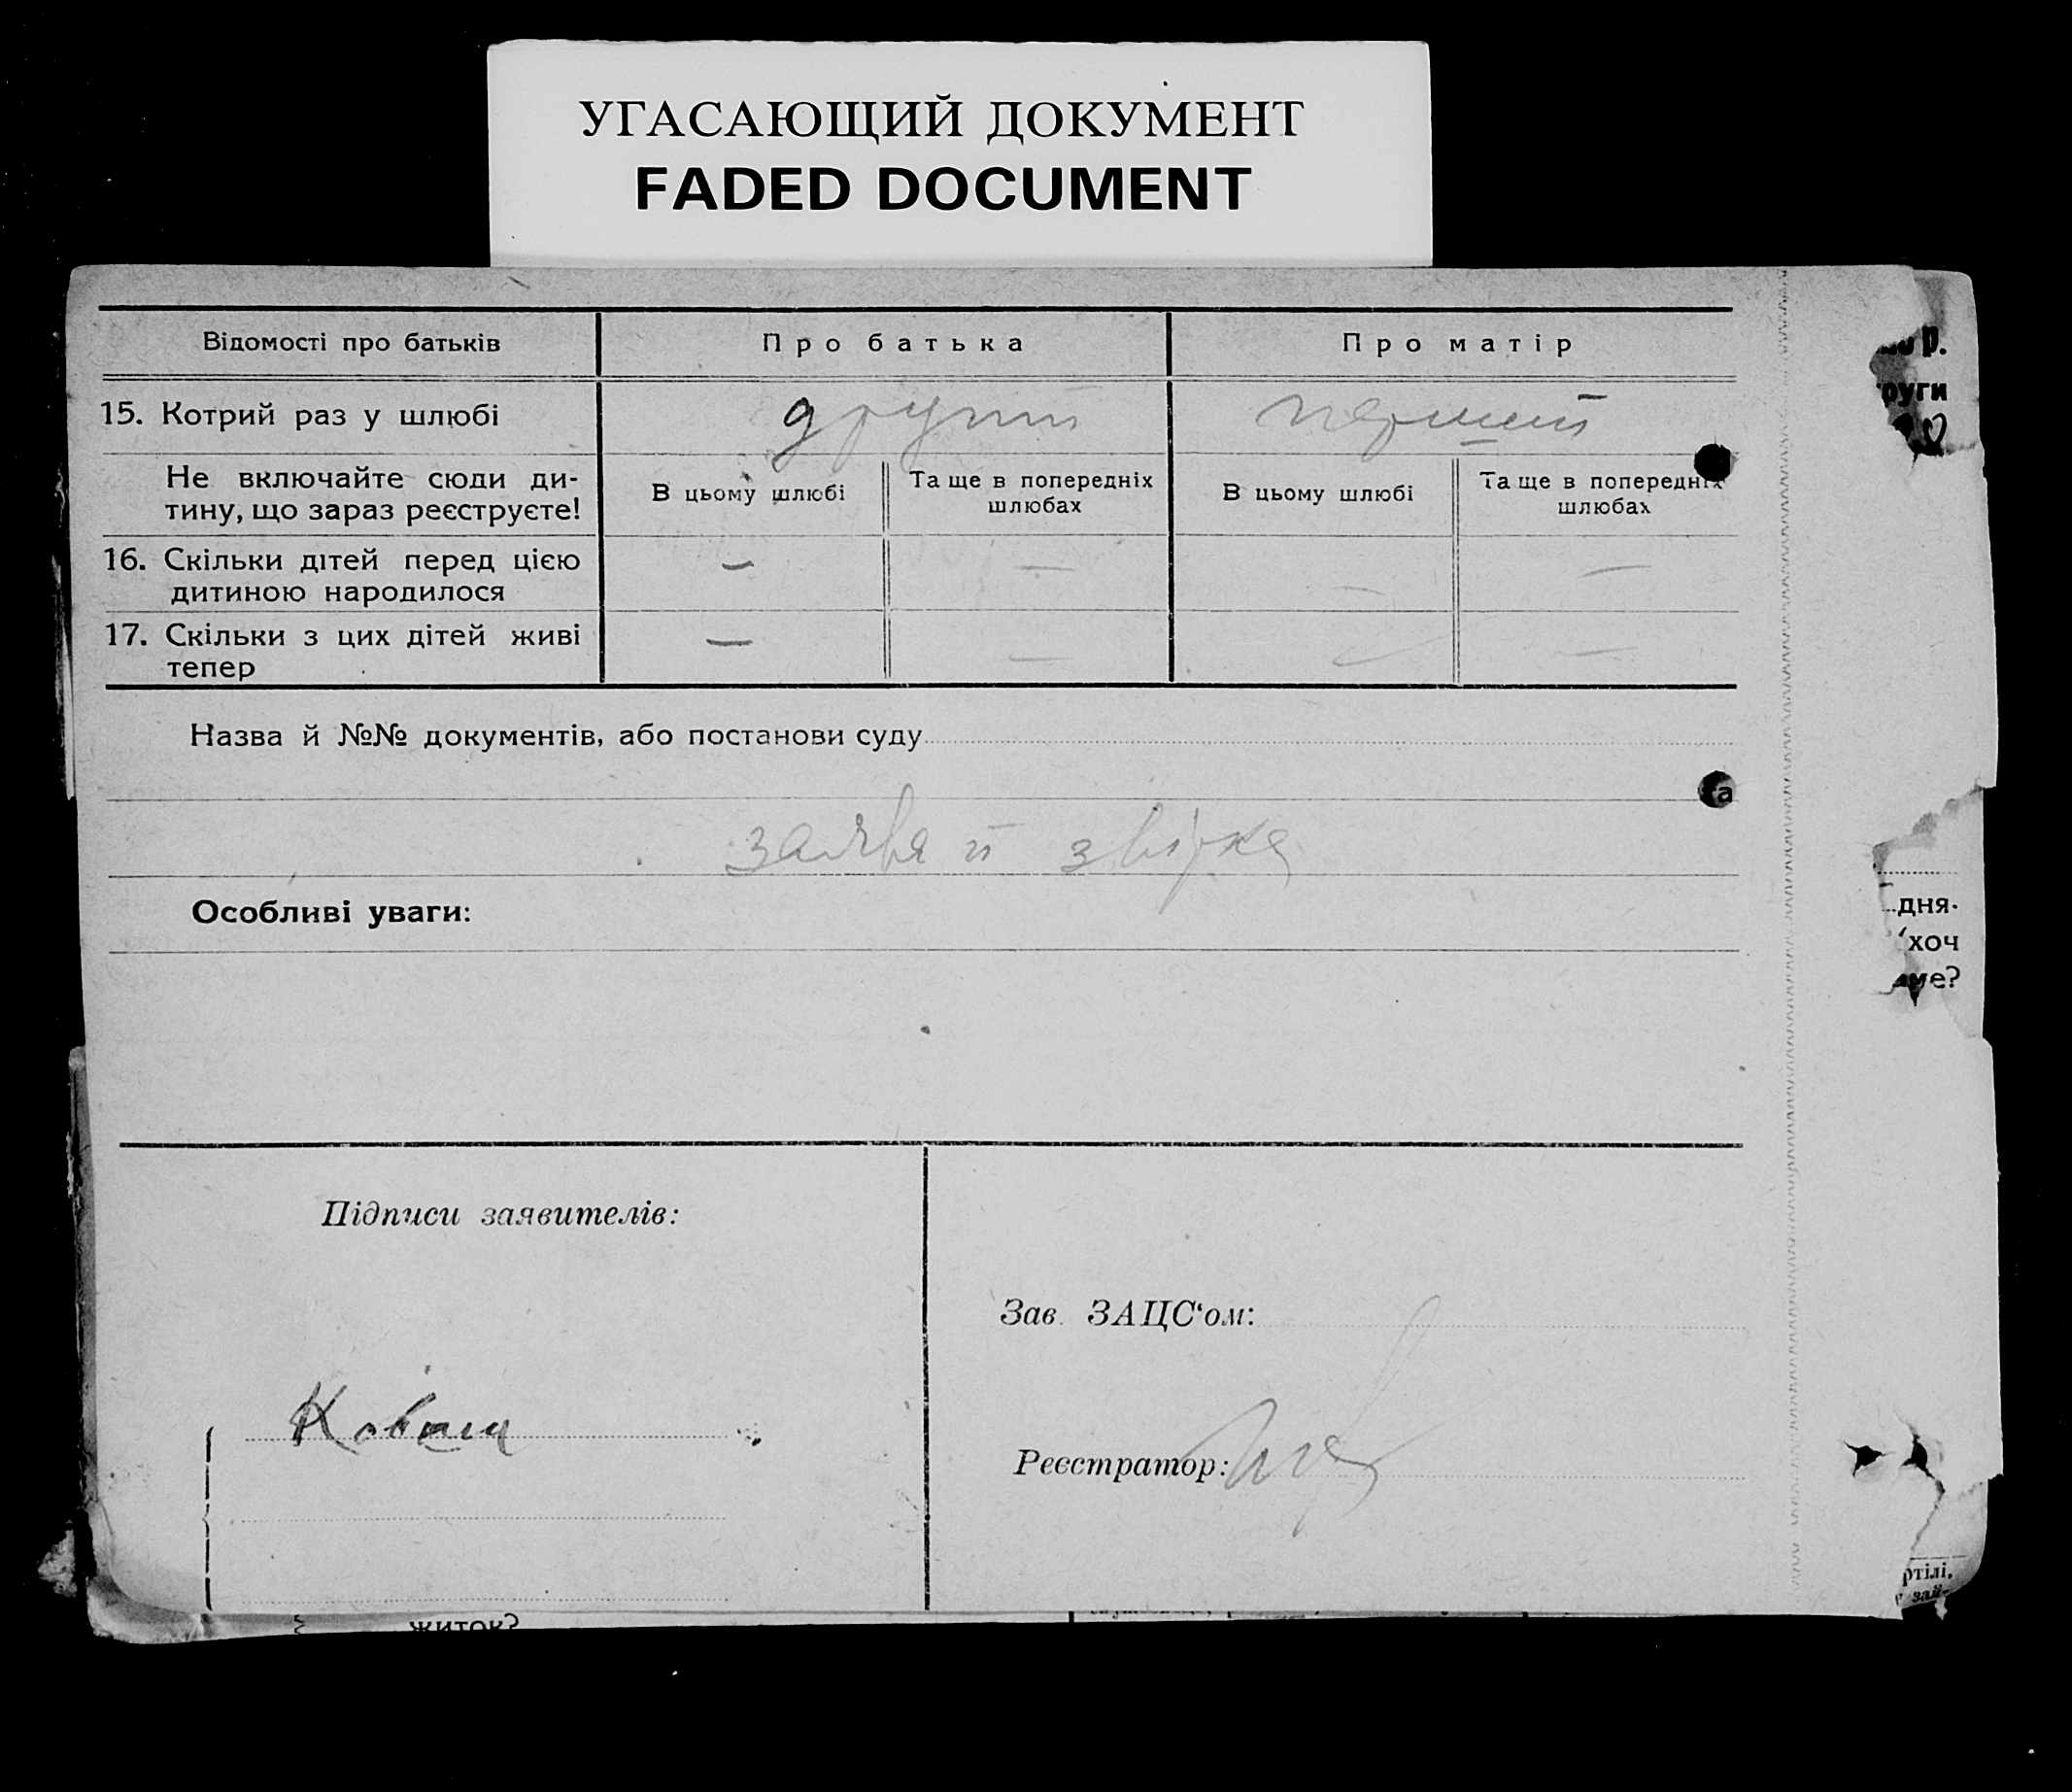 УГАСАЮЩИЙ ДОКУМЕНТ
FADED DOCUMENT
Відомості про батьків
Про батька
Про матір
15. Котрий раз у шлюбі
другий
перший
Не включайте сюди ди-
тину, що зараз реєструєте!
В цьому шлюбі
Та ще в попередніх
шлюбах
В цьому шлюбі
Та ще в попередніх
шлюбах
16. Скільки дітей перед цією
дитиною народилося
—
—
—
—
17. Скільки з цих дітей живі
тепер
—
—
—
—
Назва й №№ документів, або постанови суду
заява й звірка
Особливі уваги:
Підписи заявителів:
Зав. ЗАЦС‘ом:
Реєстратор:
р.
руги
а
дня-
хоч
ме?
ртілі,
зай-
житок?